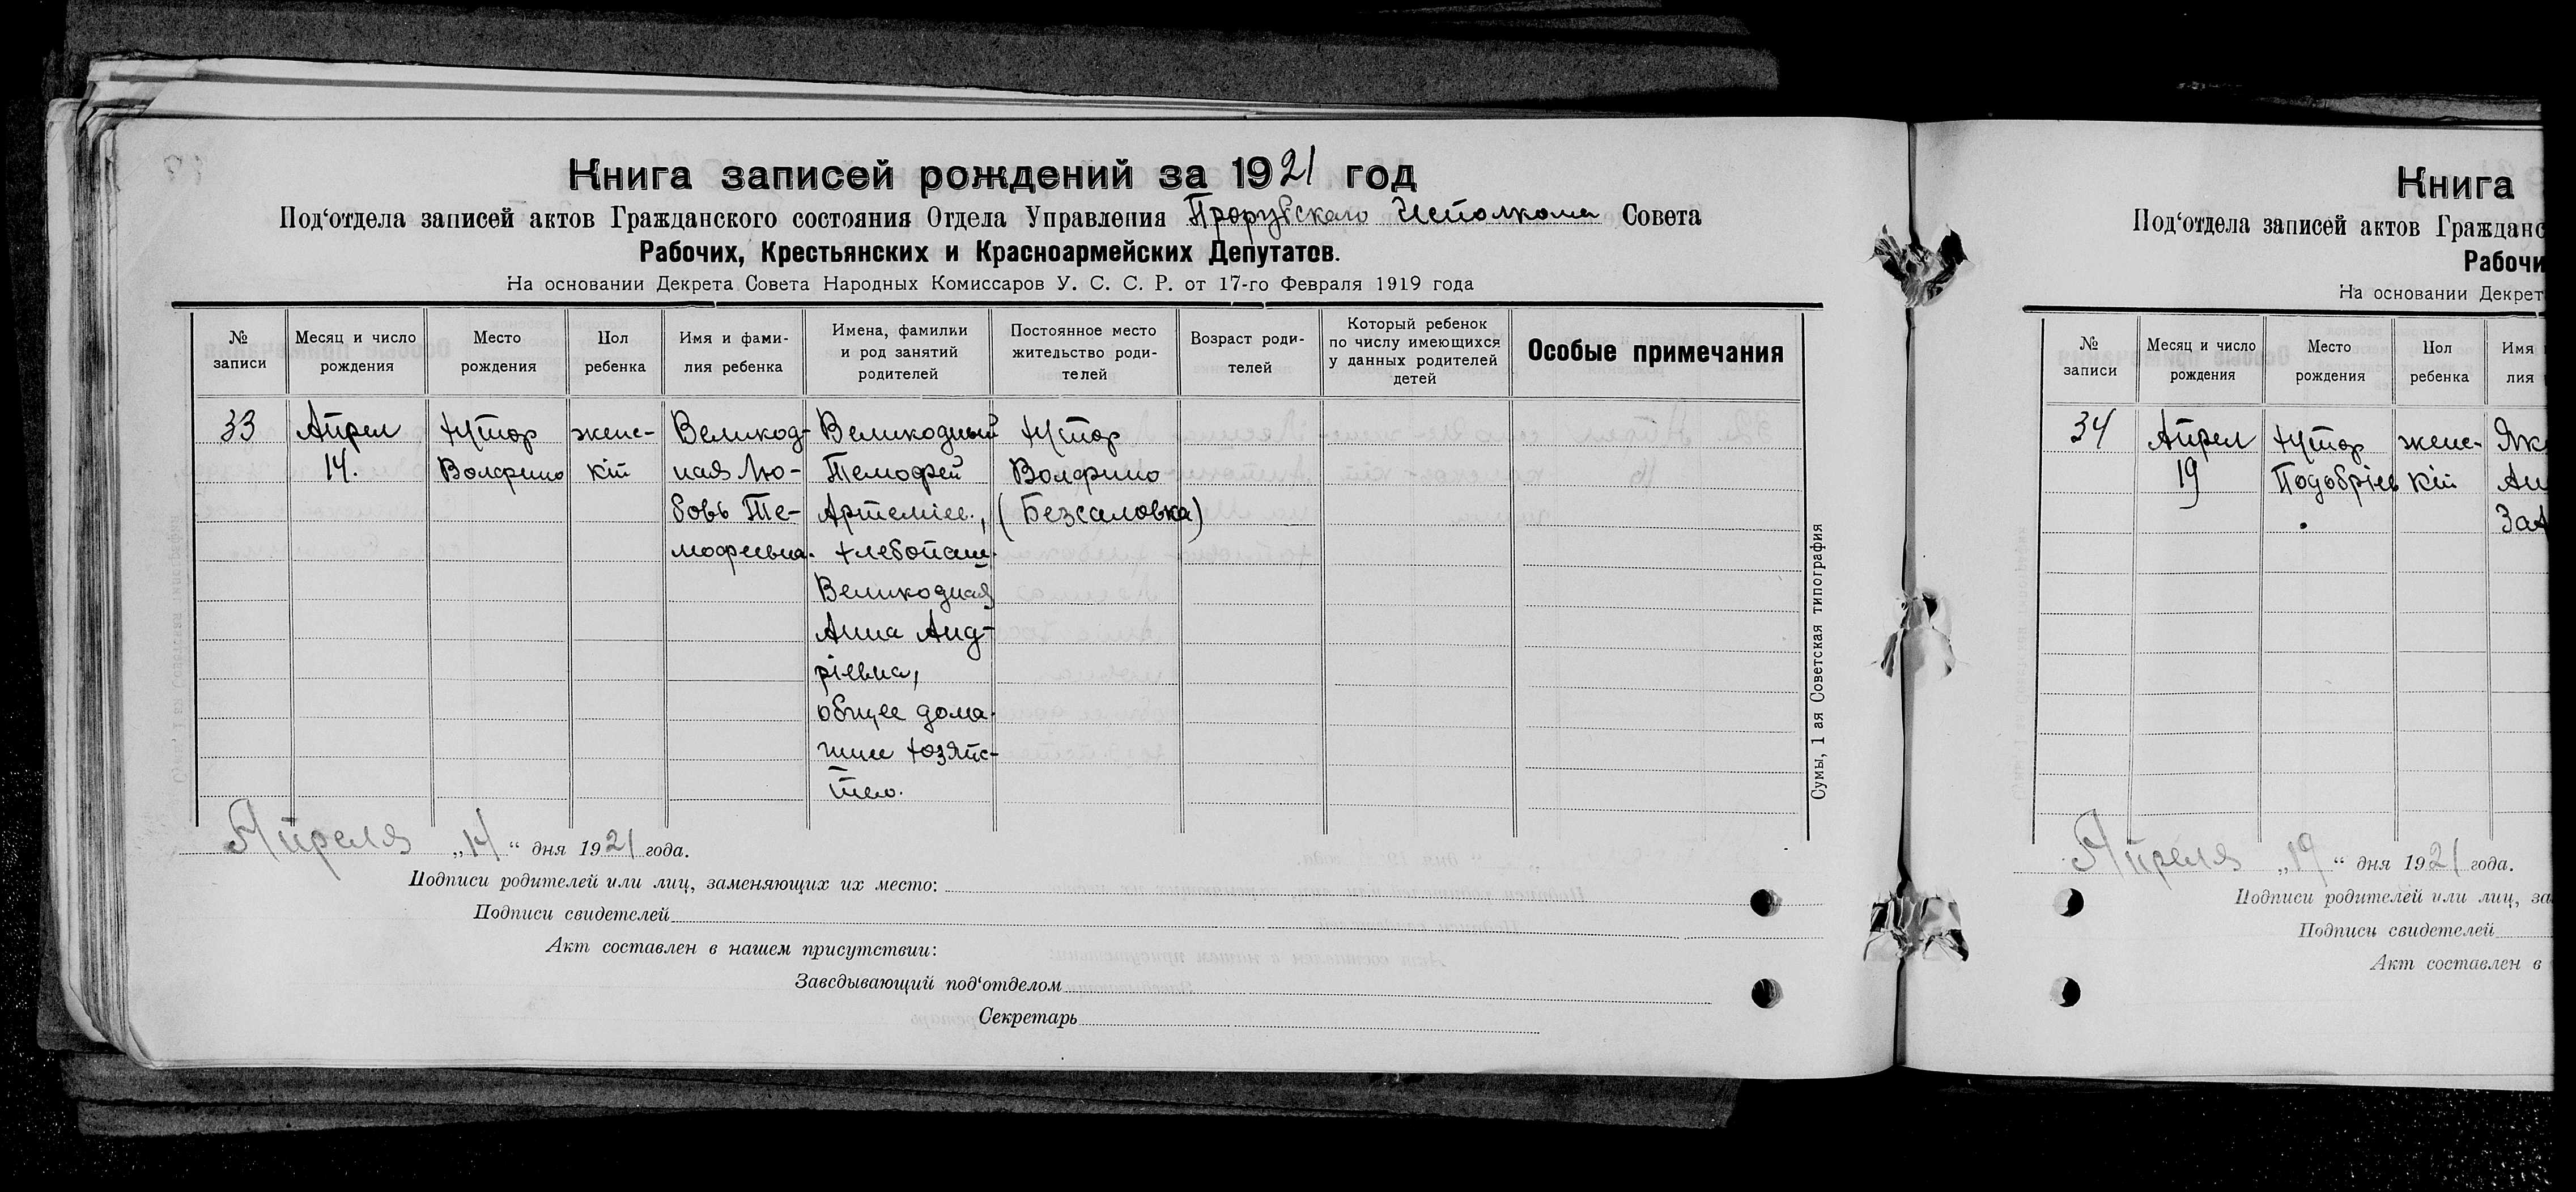 Книга записей рождений за 1921 год
Под‘отдела записей актов Гражданского состояния Отдела Управления Прорубского Исполкома Совета
Рабочих, Крестьянских и Красноармейских Депутатов.
На основании Декрета Совета Народных Комиссаров У. С. С. Р. от 17-го Февраля 1919 года
№ записи
Месяц и число рождения
Место рождения
Пол ребенка
Имя и фами-
лия ребенка
Имена, фамилии
и род занятий
родителей
Постоянное место
жительство роди-
телей
Возраст роди-
телей
Который ребенок
по числу имеющихся
у данных родителей
детей
Особые примечания
33
Апрел
14.
хутор
женс-
кій
Великод-
ная Лю-
бовь Те-
мофеевна.
Великодный
Темофей
Артеміев.,
хлебопаш.
Великодная
Анна Анд-
ріевна,
общее дома-
шнее хозяйс-
тво.
хутор
(Безсаловка)
Сумы, 1 ая Советская типография
Апреля „14“ дня 1921 года.
Подписи родителей или лиц, заменяющих их место:
Подписи свидетелей
Акт составлен в нашем присутствии:
Заведывающий под‘отделом
Секретарь
Книга
Под‘отдела записей актов Гражданс
Рабочи
На основании Декрет
№ записи
Месяц и число рождения
Место рождения
Пол ребенка
Имя
лия
34
Апрел
19
хутор
женс-
кій
Апреля „19“ дня 1921 года.
Подписи родителей или лиц, за
Подписи свидетелей
Акт составлен в